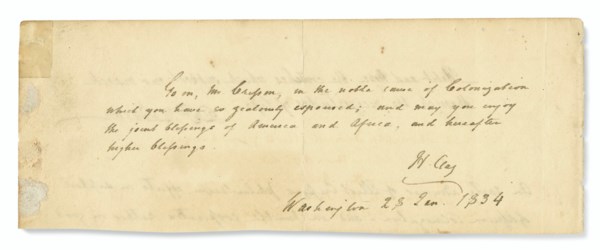 Go on, Mr Cresson, in the noble cause of Colonization
which you have so zealously espoused; and may you enjoy
the joint blessings of America and Africa, and hereafter
higher blessings.
H Clay
Washington 28 Jan. 1834